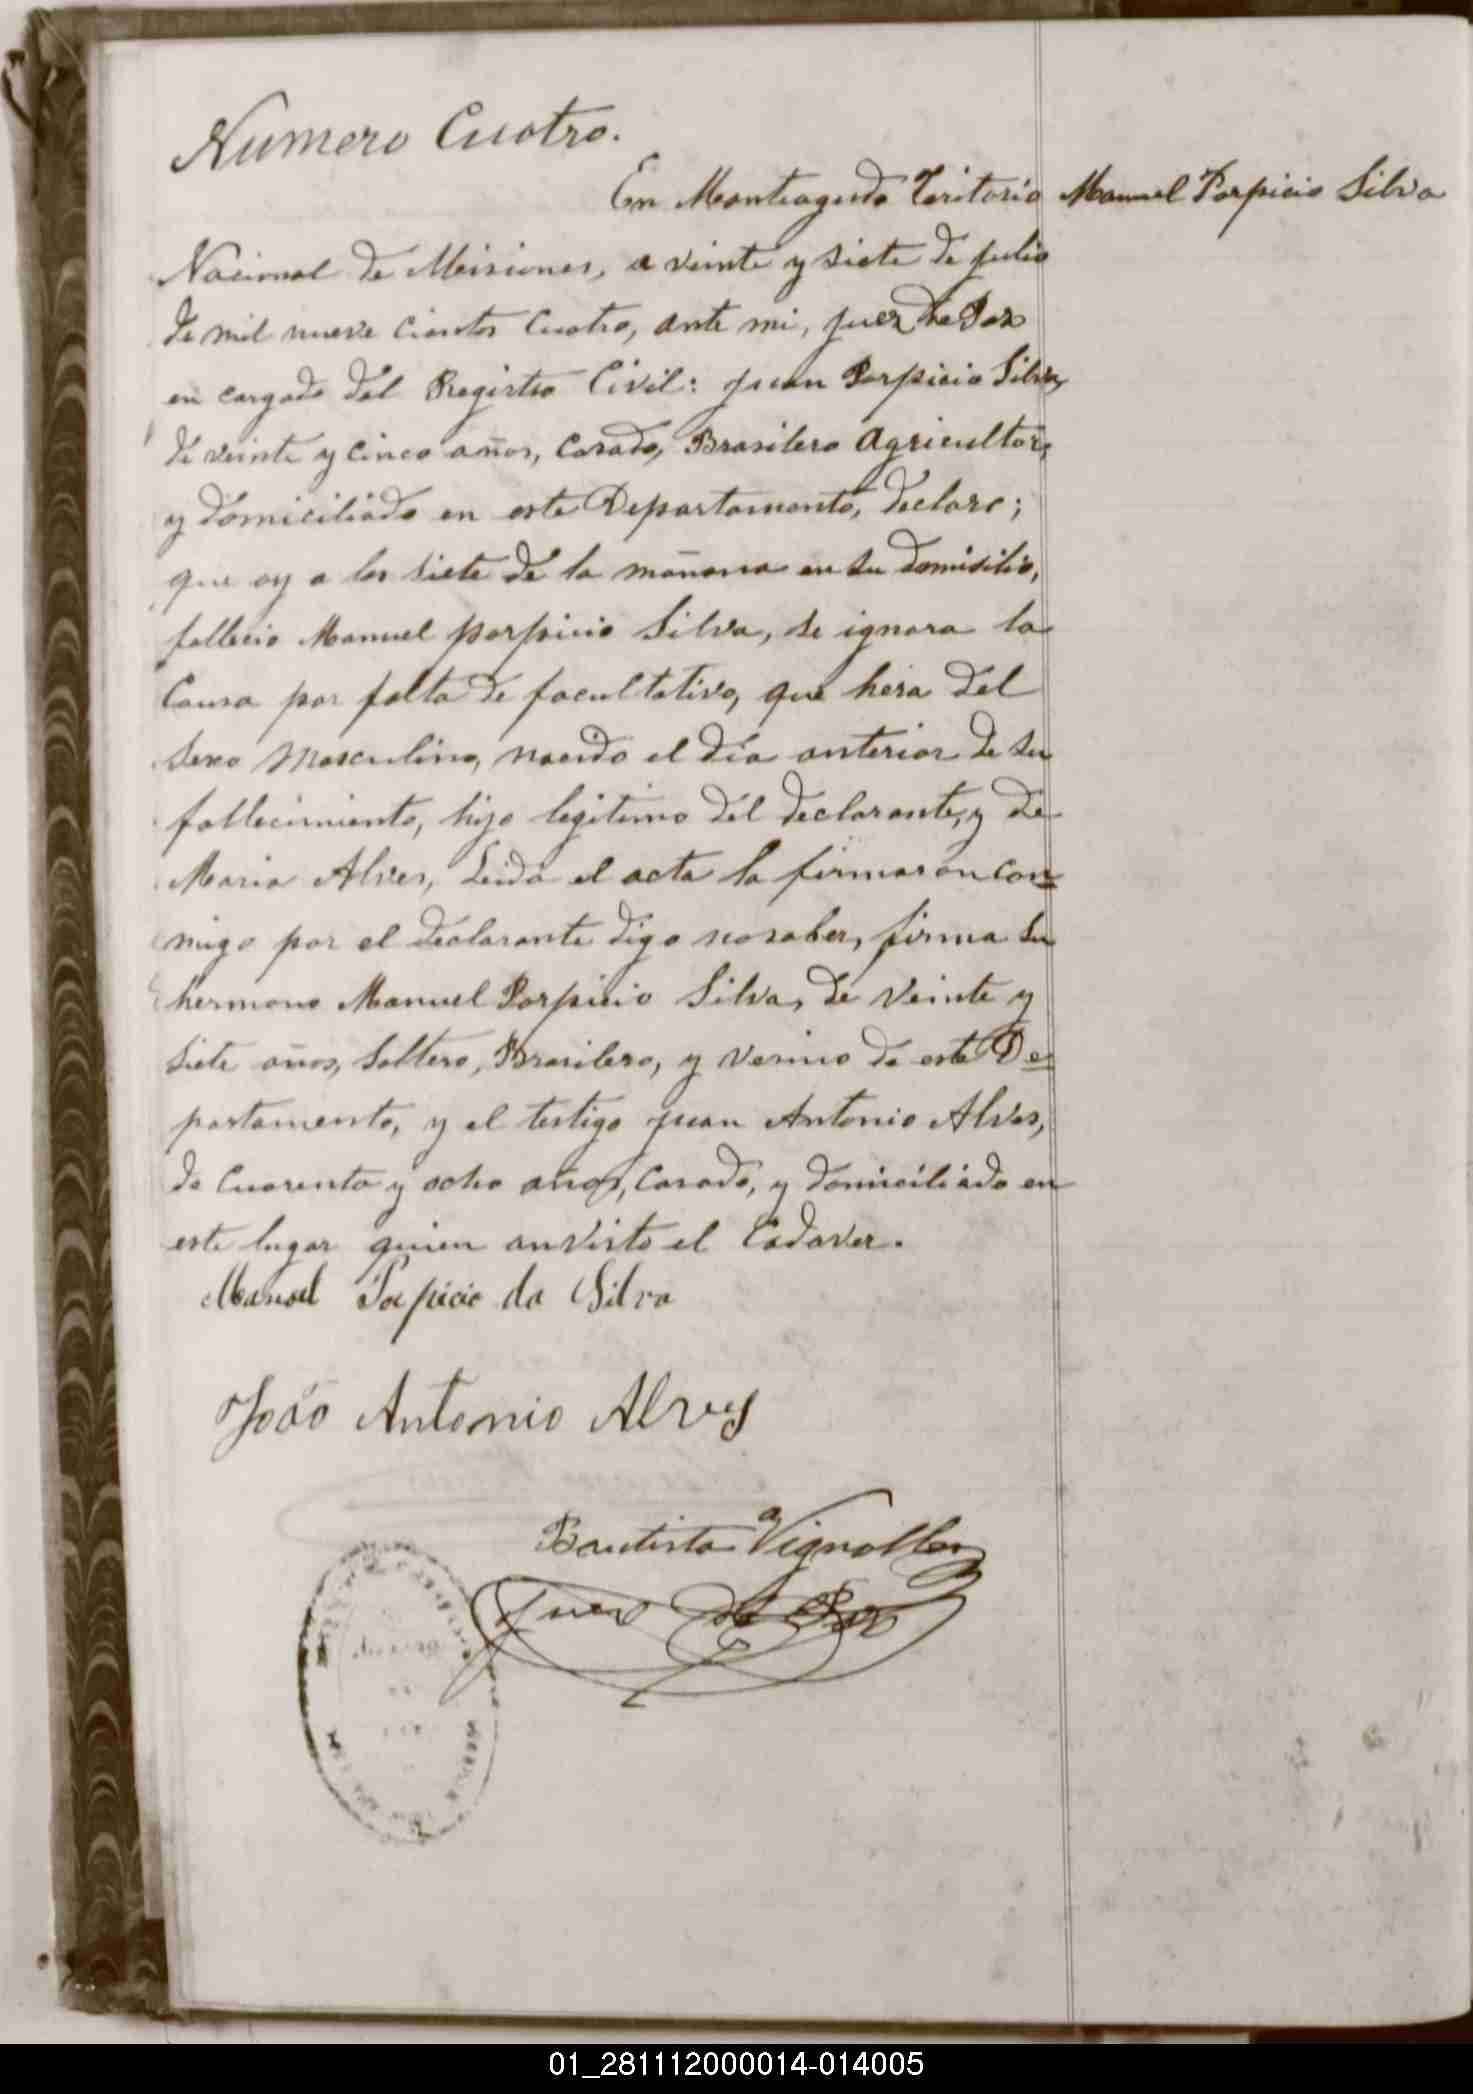 Numero Cuatro.
En Monteagudo Teritorio
Manuel Porpicio Silva
Nacional de Misiones, a veinte y siete de julio
de mil nueve cientos cuatro, ante mi, juez de Paz
en cargado del Registro Civil: juan Porpicio Silva,
de veinte y cinco años, casado, Brasilero agricultor,
y domiciliado en este Departamento, declaro;
que oy a las siete de la mañana en su domisilio,
fallecio Manuel porpicio Silva, se ignora la
Causa por falta de facultativo, que hera del
sexo masculino, nacido el dia anterior de su
fallecimiento, hijo legitimo del declarante, y de
Maria Alves, Leida el acta la firmaron con=
migo por el declarante digo no saber, firma su
hermano Manuel Porpicio Silva, de veinte y
siete años, soltero, Brasilero, y vecino de este De=
partamento, y el testigo juan Antonio Alves,
de cuarenta y ocho años, casado, y domiciliado en
este lugar quien an visto el Cadaver.
Manoel Porpicio da Silva
João Antonio Alves
Bautista Vignolles
juez de Paz
01_281112000014-014005